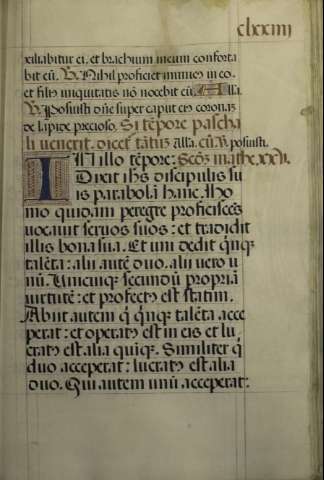 clxxiiij
xiliabitur ei. et brachium meum conforta
bit eū. ℣. Nihil proficiet inimic in eo.
et fili iniquitatis nō nocebit eū. Alla.
℣. Posuisti dn̄e super caput ei coronā
de lapide precioso. Si tēpore pascha
li venerit. dicet̄ tātū Alla. cū ℣. posuisti.
IN illo tēpore: Scdȝ mathe. xxv.
Dixit ihs discipulis su
is parabolā hanc. Ho
mo quidam peregre proficiscēs
vocavit servos suos: et tradidit
illis bona sua. Et uni dedit qnqȝ
talēta: alii autē duo. alii vero u
nū. Unicuiqȝ secundū propriā
virtutē: et profectꝰ est statim.
Abiit autem q̄ qnqȝ talēta acce
perat: et operatꝰ est in eis et lu
cratꝰ est alia quiqȝ. Similiter q̄
duo acceperat: lucratꝰ est alia
duo. Qui autem unū acceperat: